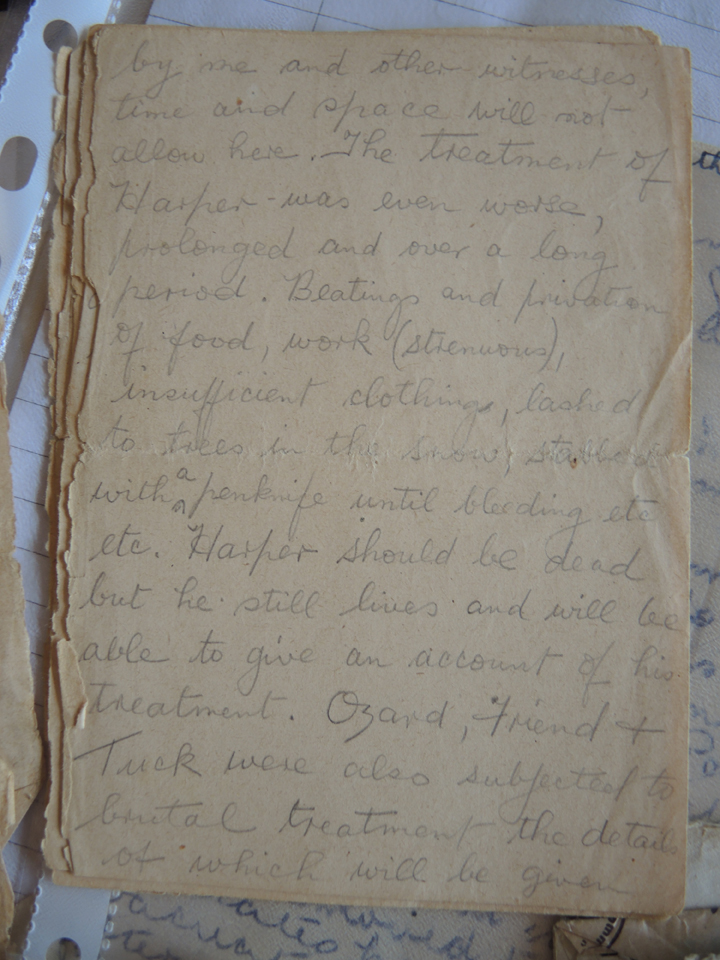 by me and other witnesses,
time and space will not
allow here. The treatment of
Harper - was even worse,
prolonged and over a long
period. Beatings and privation
of food, work (strenuous),
insufficient clothing, lashed
to trees in the snow, stabbed
with a penknife until bleeding etc
etc. Harper should be dead
but he still lives and will be
able to give an account of his
treatment. Ozard, Friend +
Tuck were also subjected to
brutal treatment the details
of which will be given